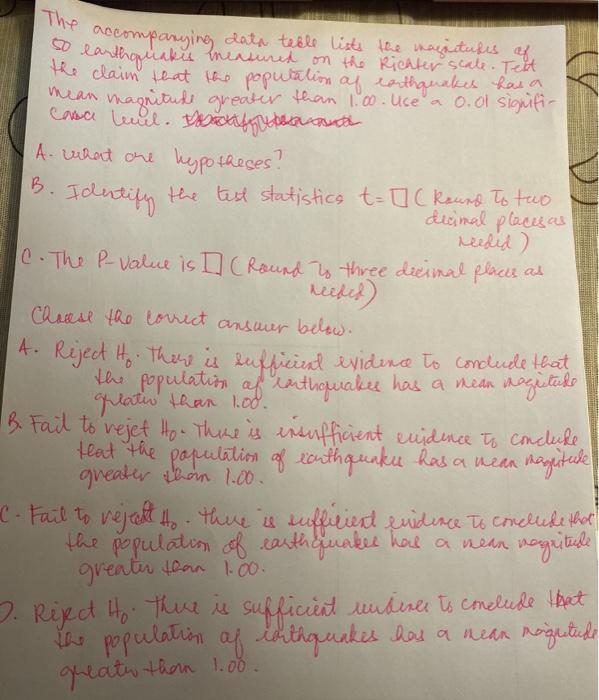 The accompanying data table lists the magnitudes of
50 earthquakes measured on the Richter scale. Test
the claim that the population of earthquakes has a
mean magnitude greater than 1.00. Use a 0.01 signifi-
cance level.
A. What are hypotheses?
B. Identify the test statistics t= □ (Round To two
decimal places as
needed)
C. The P-value is □ (Round To three decimal places as
needed)
Choose the correct answer below.
A. Reject H₀. There is sufficient evidence to conclude that
the population of earthquakes has a mean magnitude
greater than 1.00.
B. Fail to reject H₀. There is insufficient evidence to conclude
that the population of earthquakes has a mean magnitude
greater than 1.00.
C. Fail to reject H₀. There is sufficient evidence to conclude that
the population of earthquakes has a mean magnitude
greater than 1.00.
D. Reject H₀. There is sufficient evidence to conclude that
the population of earthquakes has a mean magnitude
greater than 1.00.